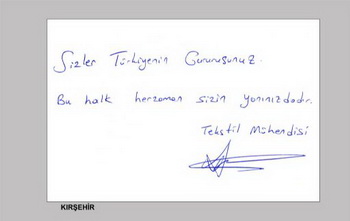 Sizler Türkiyenin Gururusunuz.
Bu halk herzaman sizin yanınızdadır.
Tekstil Mühendisi
KIRŞEHİR